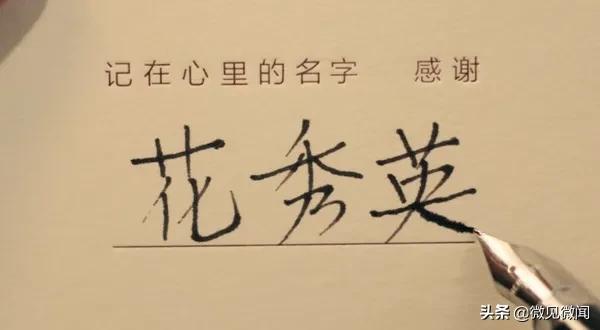 记在心里的名字 感谢
花秀英
头条 @微见微闻